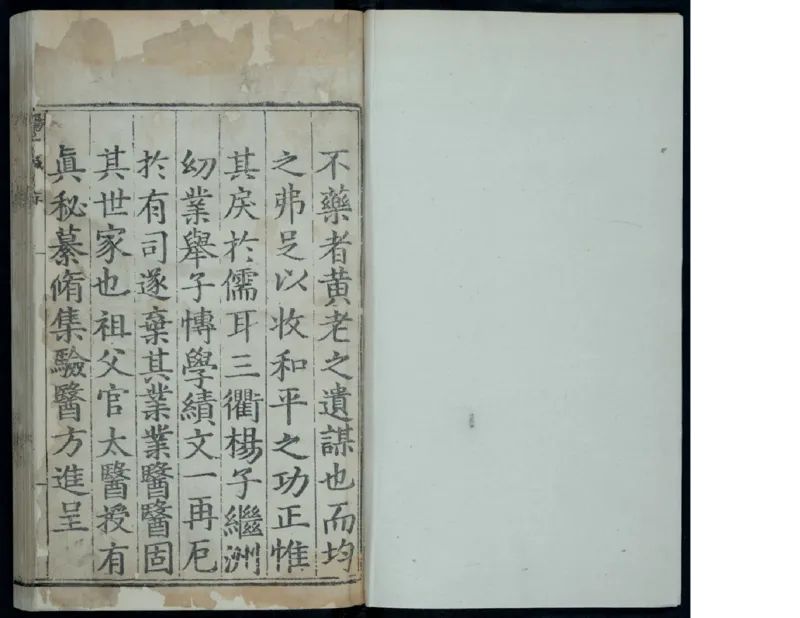 不藥者黃老之遺謀也而均
之弗足以收和平之功正惟
其戾於儒耳三衢楊子繼洲
幼業舉子慱學績文一再厄
於有司遂棄其業業醫醫固
其世家也祖父官太醫授有
眞秘纂脩集驗醫方進呈